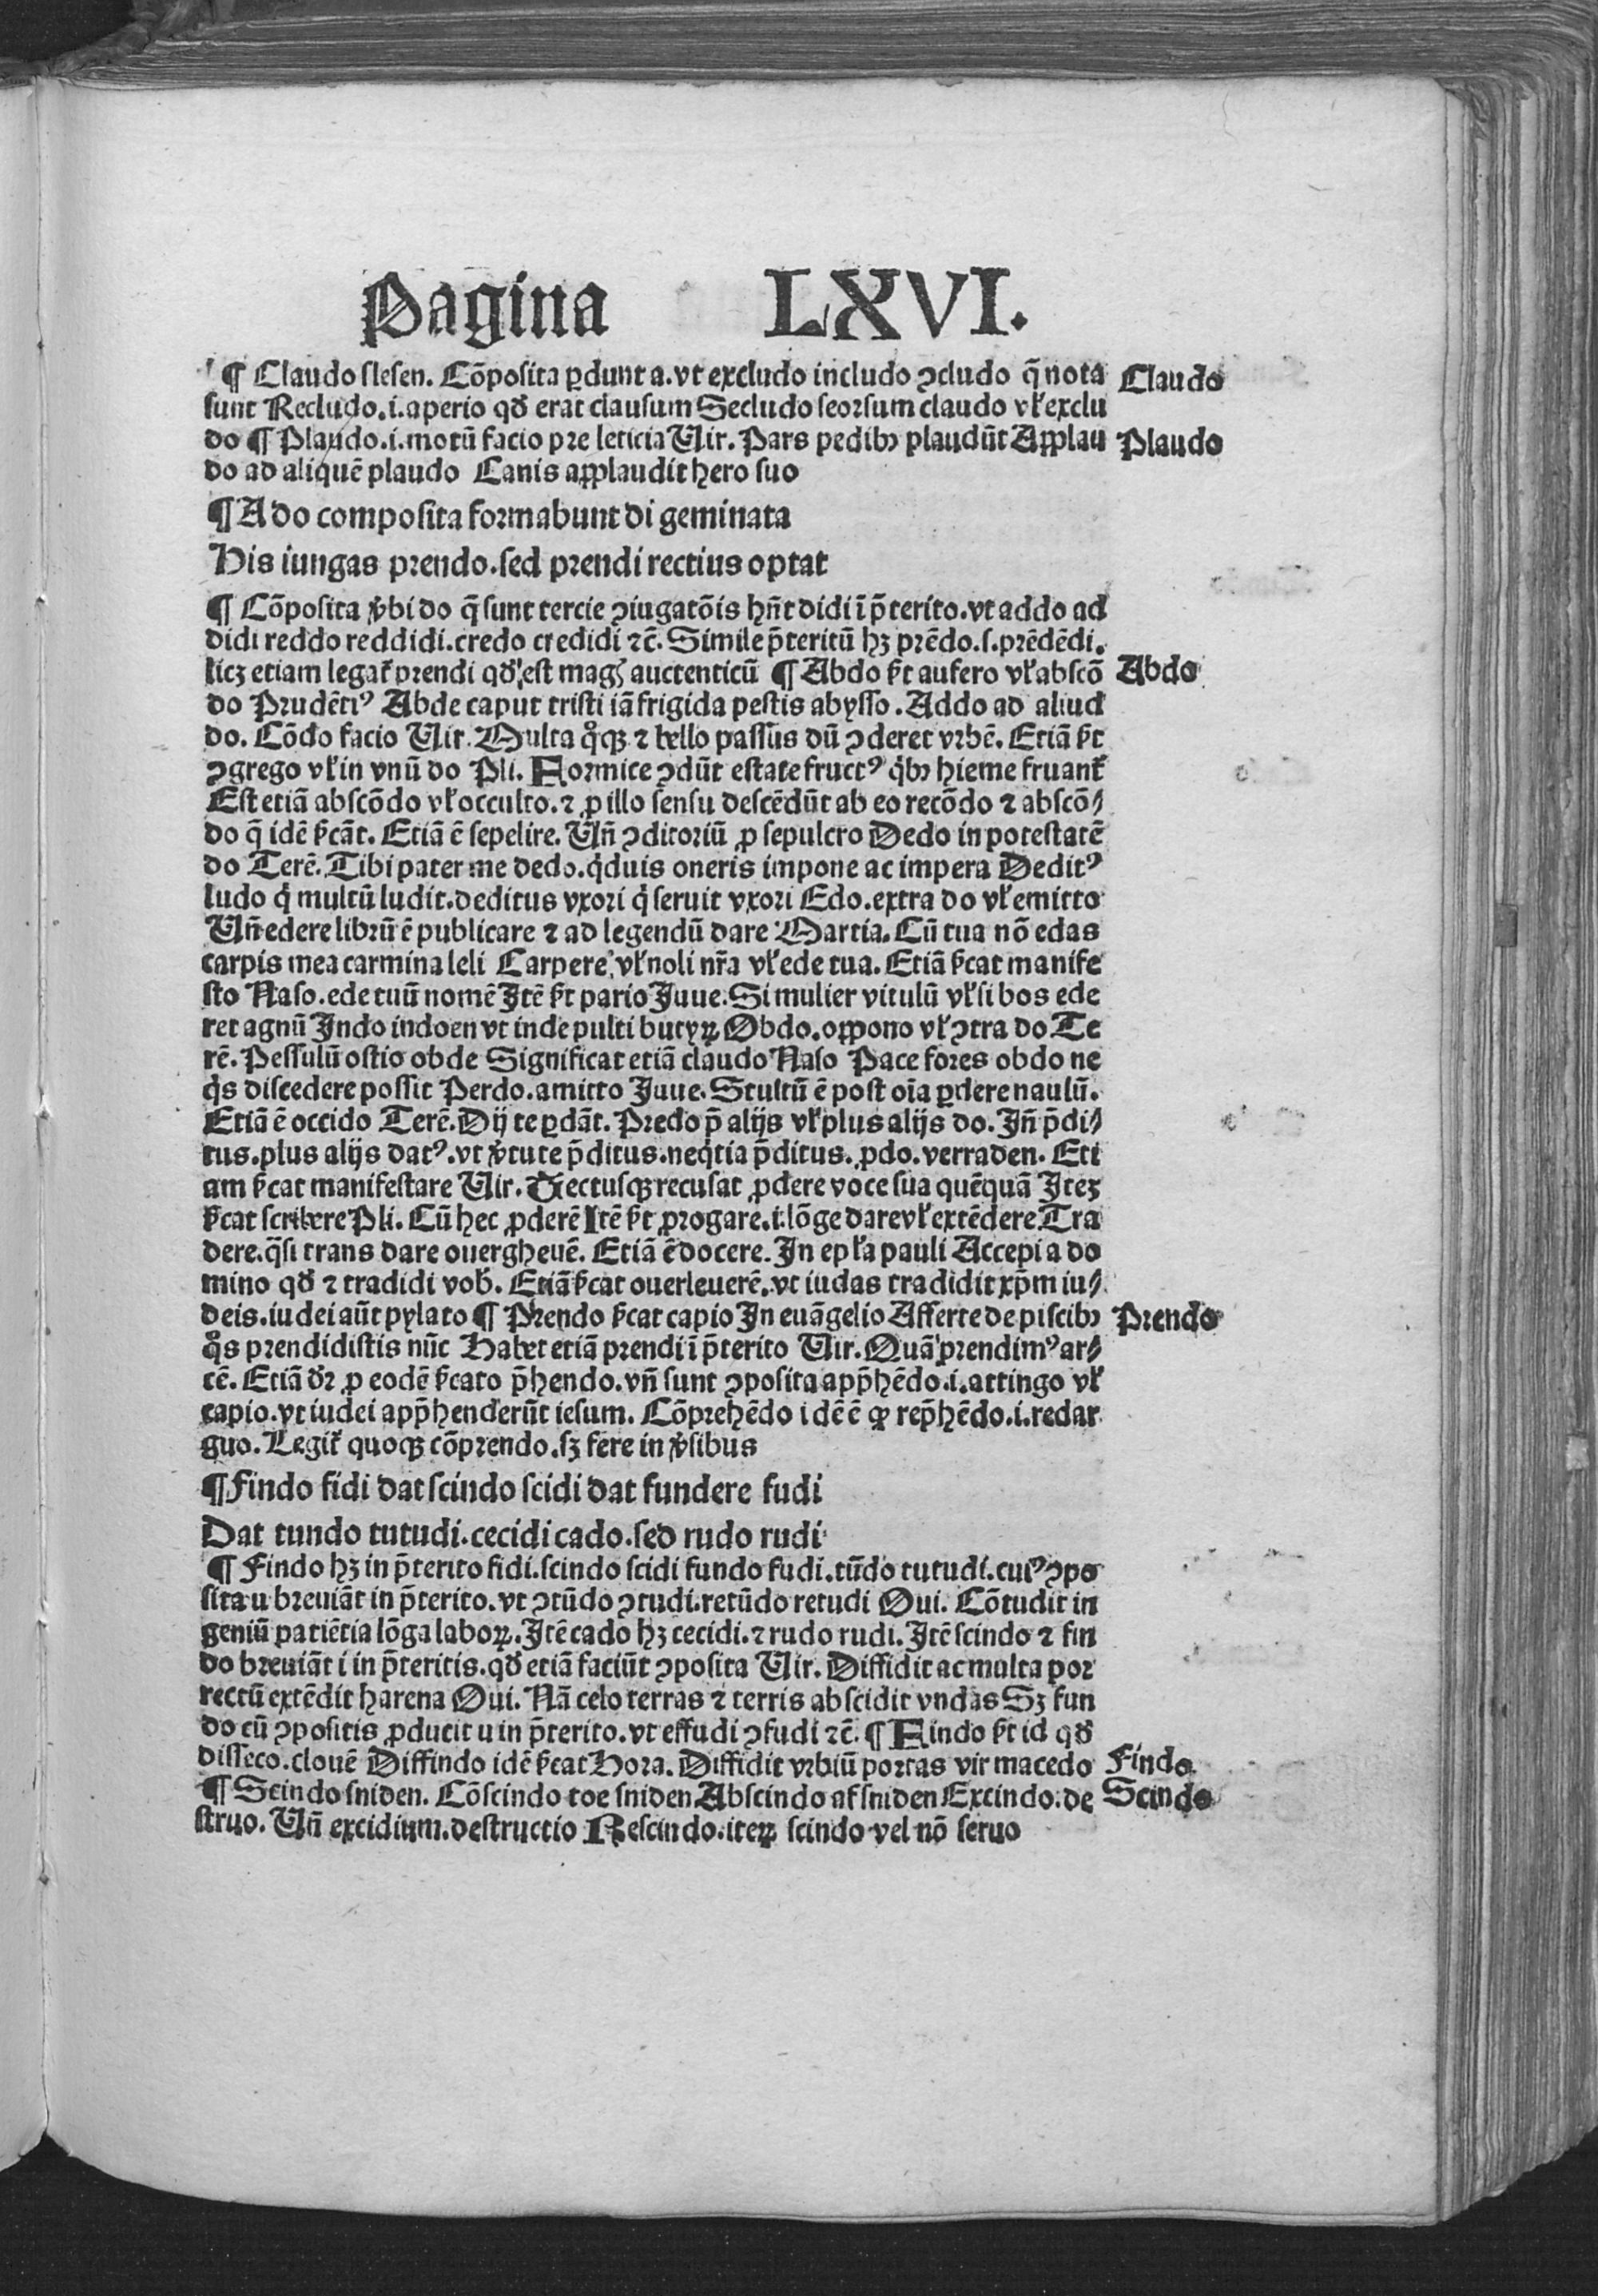 Pagina LXVI.
¶ Claudo slesen. Cōposita ꝑdunt a. vt excludo includo ↄcludo q̄ nota
Claudo
sunt Recludo .i. aperio qđ erat clausum Secludo seorsum claudo vł exclu
do ¶ Plaudo .i. motū facio pre leticia Uir. Pars pedibꝫ plaudūt Applau
Plaudo
do ad aliquē plaudo Canis applaudit hero suo
¶ A do composita formabunt di geminata
His iungas prendo. sed prendi rectius optat
¶ Cōposita v̄bi do q̄ sunt tercie ↄiugatōis hn̄t didi ī p̄terito. vt addo ad
didi reddo reddidi. credo credidi ⁊c̄. Simile p̄teritū hꝫ prēdo .s. prēdēdi.
licꝫ etiam legat᷑ prendi qđ est magꝭ auctenticū ¶ Abdo ſꝫt aufero vł abscō
Abdo
do Prudētiꝰ Abde caput tristi iā frigida pestis abysso. Addo ad aliud
do. Cōdo facio Uir. Multa qͦꝗꝫ ⁊ bello passus dū ↄderet vrbē. Etiā ſꝫt
ↄgrego vł in vnū do Pli. Formice ↄdūt estate fructꝰ qͥbꝫ hieme fruant᷑
Est etiā abscōdo vł occulto. ⁊ ꝓ illo sensu descēdūt ab eo recōdo ⁊ abscō⸗
do q̄ idē ſꝫcāt. Etiā ē sepelire. Un̄ ↄditoriū ꝓ sepulcro Dedo in potestatē
do Terē. Tibi pater me dedo. qͥduis oneris impone ac impera Deditꝰ
ludo qͥ multū ludit. deditus vxori qͥ seruit vxori Edo. extra do vł emitto
Un̄ edere librū ē publicare ⁊ ad legendū dare Martia. Cū tua nō edas
carpis mea carmina leli Carpere vł noli nr̄a vł ede tua. Etiā ſꝫcat manife
sto Naso. ede tuū nomē Itē ſꝫt pario Iuue. Si mulier vitulū vł si bos ede
ret agnū Indo indoen vt inde pulti butyꝝ Obdo. oppono vł ↄtra do Te
rē. Pessulū ostio obde Significat etiā claudo Naso Pace fores obdo ne
qͥs discedere possit Perdo. amitto Iuue. Stultū ē post oīa ꝑdere naulū.
Etiā ē occido Terē. Dij te ꝑdāt. Predo p̄ alijs vł plus alijs do. In̄ p̄di⸗
tus. plus alijs datꝰ. vt v̄tute p̄ditus. neqͥtia p̄ditus. ꝓdo. verraden. Eti
am ſꝫcat manifestare Uir. Tectusꝗꝫ recusat ꝓdere voce sua quēquā Iteꝫ
ſꝫcat scribere Pli. Cū hec ꝓderē Itē ſꝫt ꝓrogare .i. lōge dare vł extēdere Tra
dere. qͣsi trans dare ouergheuē. Etiā ē docere. In epła pauli Accepi a do
mino qđ ⁊ tradidi vob̄. Etiā ſꝫcat ouerleuerē. vt iudas tradidit xp̄m iu⸗
deis. iudei aūt pylato ¶ Prendo ſꝫcat capio In euāgelio Afferte de piscibꝫ
Prendo
qͦs prendidistis nūc Habet etiā prendi ī p̄terito Uir. Quā prendimꝰ ar⸗
cē. Etiā dr̄ ꝓ eodē ſꝫcato p̄hendo. vn̄ sunt ↄposita app̄hēdo .i. attingo vł
capio. vt iudei app̄henderūt iesum. Cōprehēdo idē ē ꝙ rep̄hēdo .i. redar
guo. Legit᷑ quoꝗꝫ cōprendo. sꝫ fere in v̄sibus
¶ Findo fidi dat scindo scidi dat fundere fudi
Dat tundo tutudi. cecidi cado. sed rudo rudi
¶ Findo hꝫ in p̄terito fidi. scindo scidi fundo fudi. tūdo tutudi. cuiꝰ ↄpo
sita u breuiāt in p̄terito. vt ↄtūdo ↄtudi. retūdo retudi Oui. Cōtudit in
geniū patiētia lōga laboꝝ. Itē cado hꝫ cecidi. ⁊ rudo rudi. Itē scindo ⁊ fin
do breuiāt i in p̄teritis. qđ etiā faciūt ↄposita Uir. Diffidit ac multa por
rectū extēdit harena Oui. Nā celo terras ⁊ terris abscidit vndas Sꝫ fun
do cū ↄpositis ꝓducit u in p̄terito. vt effudi ↄfudi ⁊c̄. ¶ Findo ſꝫt id qđ
disseco. clouē Diffindo idē ſꝫcat Hora. Diffidit vrbiū portas vir macedo
Findo
¶ Scindo sniden. Cōscindo toe sniden Abscindo af sniden Excindo. de
Scindo
struo. Un̄ excidium. destructio Rescindo. iteꝝ scindo vel nō seruo